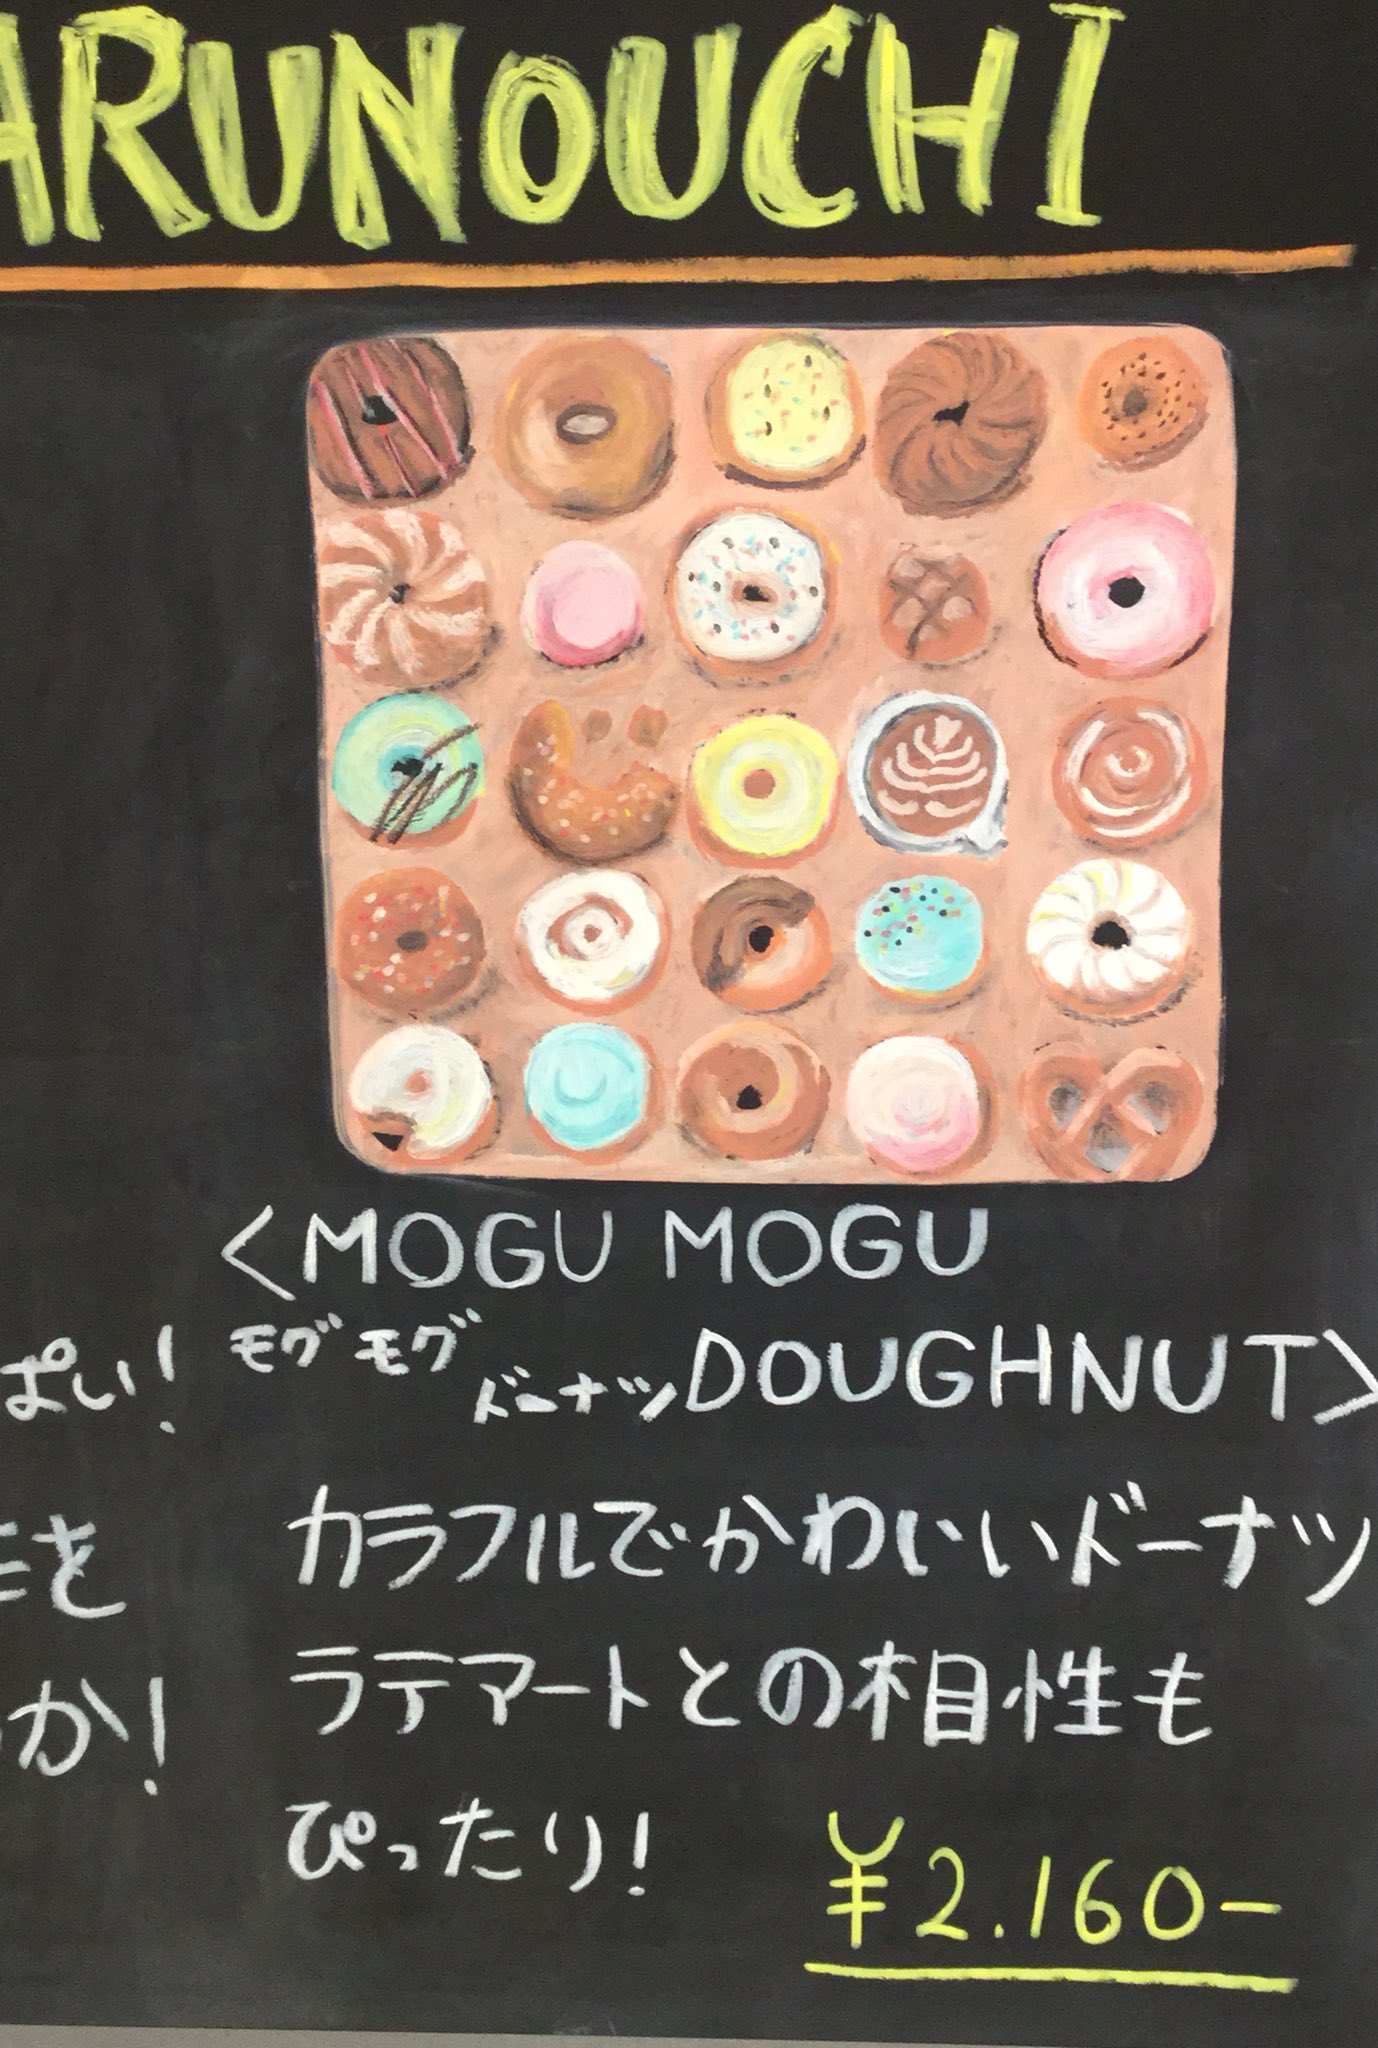 ARUNOUCHI
<MOGU MOGU
モグモグ
ドーナツ DOUGHNUT>
ぱい!
カラフルでかわいいドーナツ
を
ラテアートとの相性も
か!
ぴったり!
¥2.160-